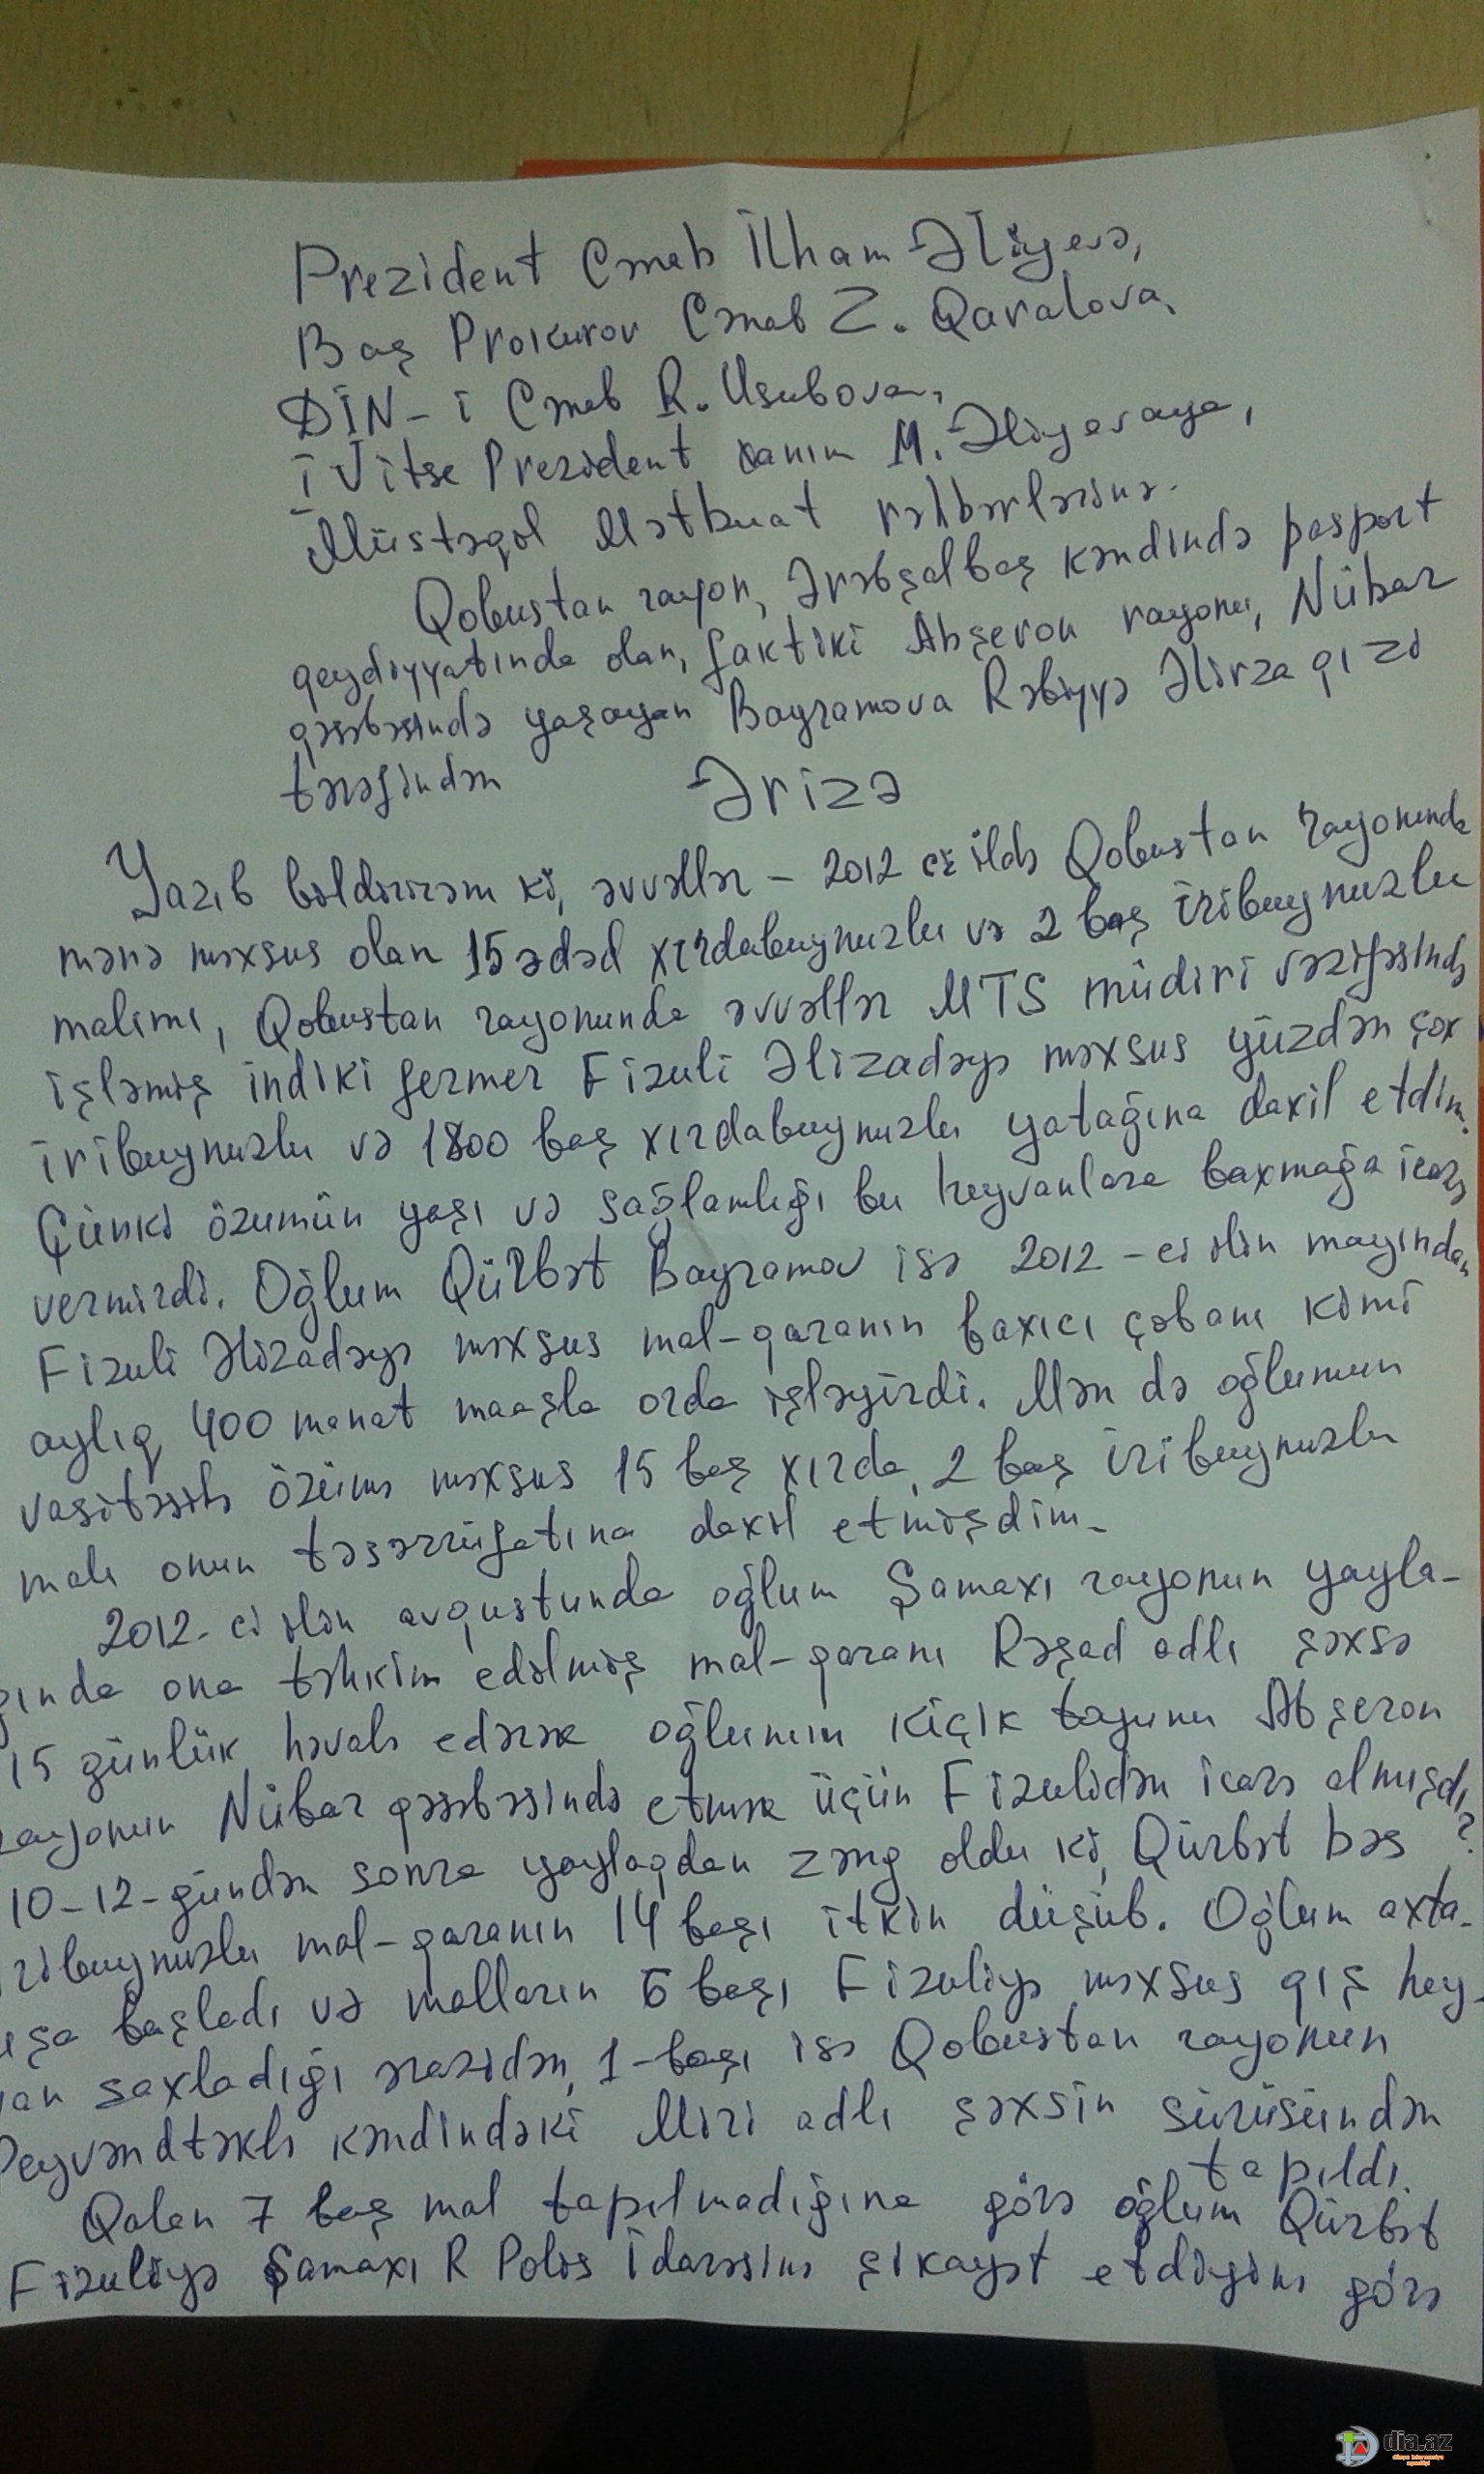 Prezident Cənab İlham Əliyevə,
Baş Prokuror Cənab Z. Qaralova,
DİN-i Cənab R. Usubova,
I Vitse Prezident xanım M. Əliyevaya,
Müstəqil Mətbuat rəhbərlərinə.
Qobustan rayon, Ərəbşalbaş kəndində pasport
qeydiyyatında olan, faktiki Abşeron rayonu, Nübar
qəsəbəsində yaşayan Bayramova Rəbiyyə Əlirza qızı
tərəfindən
Ərizə
Yazıb bildirirəm ki, əvvəllər - 2012 ci ildə Qobustan rayonunda
mənə məxsus olan 15 ədəd xırdabuynuzlu və 2 baş iribuynuzlu
malımı, Qobustan rayonunda əvvəllər MTS müdiri vəzifəsində
işləmiş indiki fermer Fizuli Əlizadəyə məxsus yüzdən çox
iribuynuzlu və 1800 baş xırdabuynuzlu yatağına daxil etdim.
Çünki özümün yaşı və sağlamlığı bu heyvanlara baxmağa icazə
vermirdi. Oğlum Qürbət Bayramov isə 2012-ci ilin mayından
Fizuli Əlizadəyə məxsus mal-qaranın baxıcı çobanı kimi
aylıq 400 manat maaşla orda işləyirdi. Mən də oğlumun
vasitəsilə özümə məxsus 15 baş xırda, 2 baş iribuynuzlu
malı onun təsərrüfatına daxil etmişdim.
2012-ci ilin avqustunda oğlum Şamaxı rayonun yayla-
ğında ona təhkim edilmiş mal-qaranı Rəşad adlı şəxsə
15 günlük həvalə edərək oğlumun kiçik toyunu Abşeron
rayonun Nübar qəsəbəsində etmək üçün Fizulidən icazə almışdı.
10-12-gündən sonra yaylaqdan zəng oldu ki, Qürbət bəs ?
iribuynuzlu mal-qaranın 14 başı itkin düşüb. Oğlum axta-
ışa başladı və malların 6 başı Fizuliyə məxsus qış hey-
van saxladığı ərazidən, 1-başı isə Qobustan rayonun
Poeyvəndtəklə kəndindəki Miri adlı şəxsin sürüsündən
tapıldı.
Qalan 7 baş mal tapılmadığına görə oğlum Qürbət
Fizuliyə Şamaxı R Polis İdarəsinə şikayət etdiyinə görə
dia.az